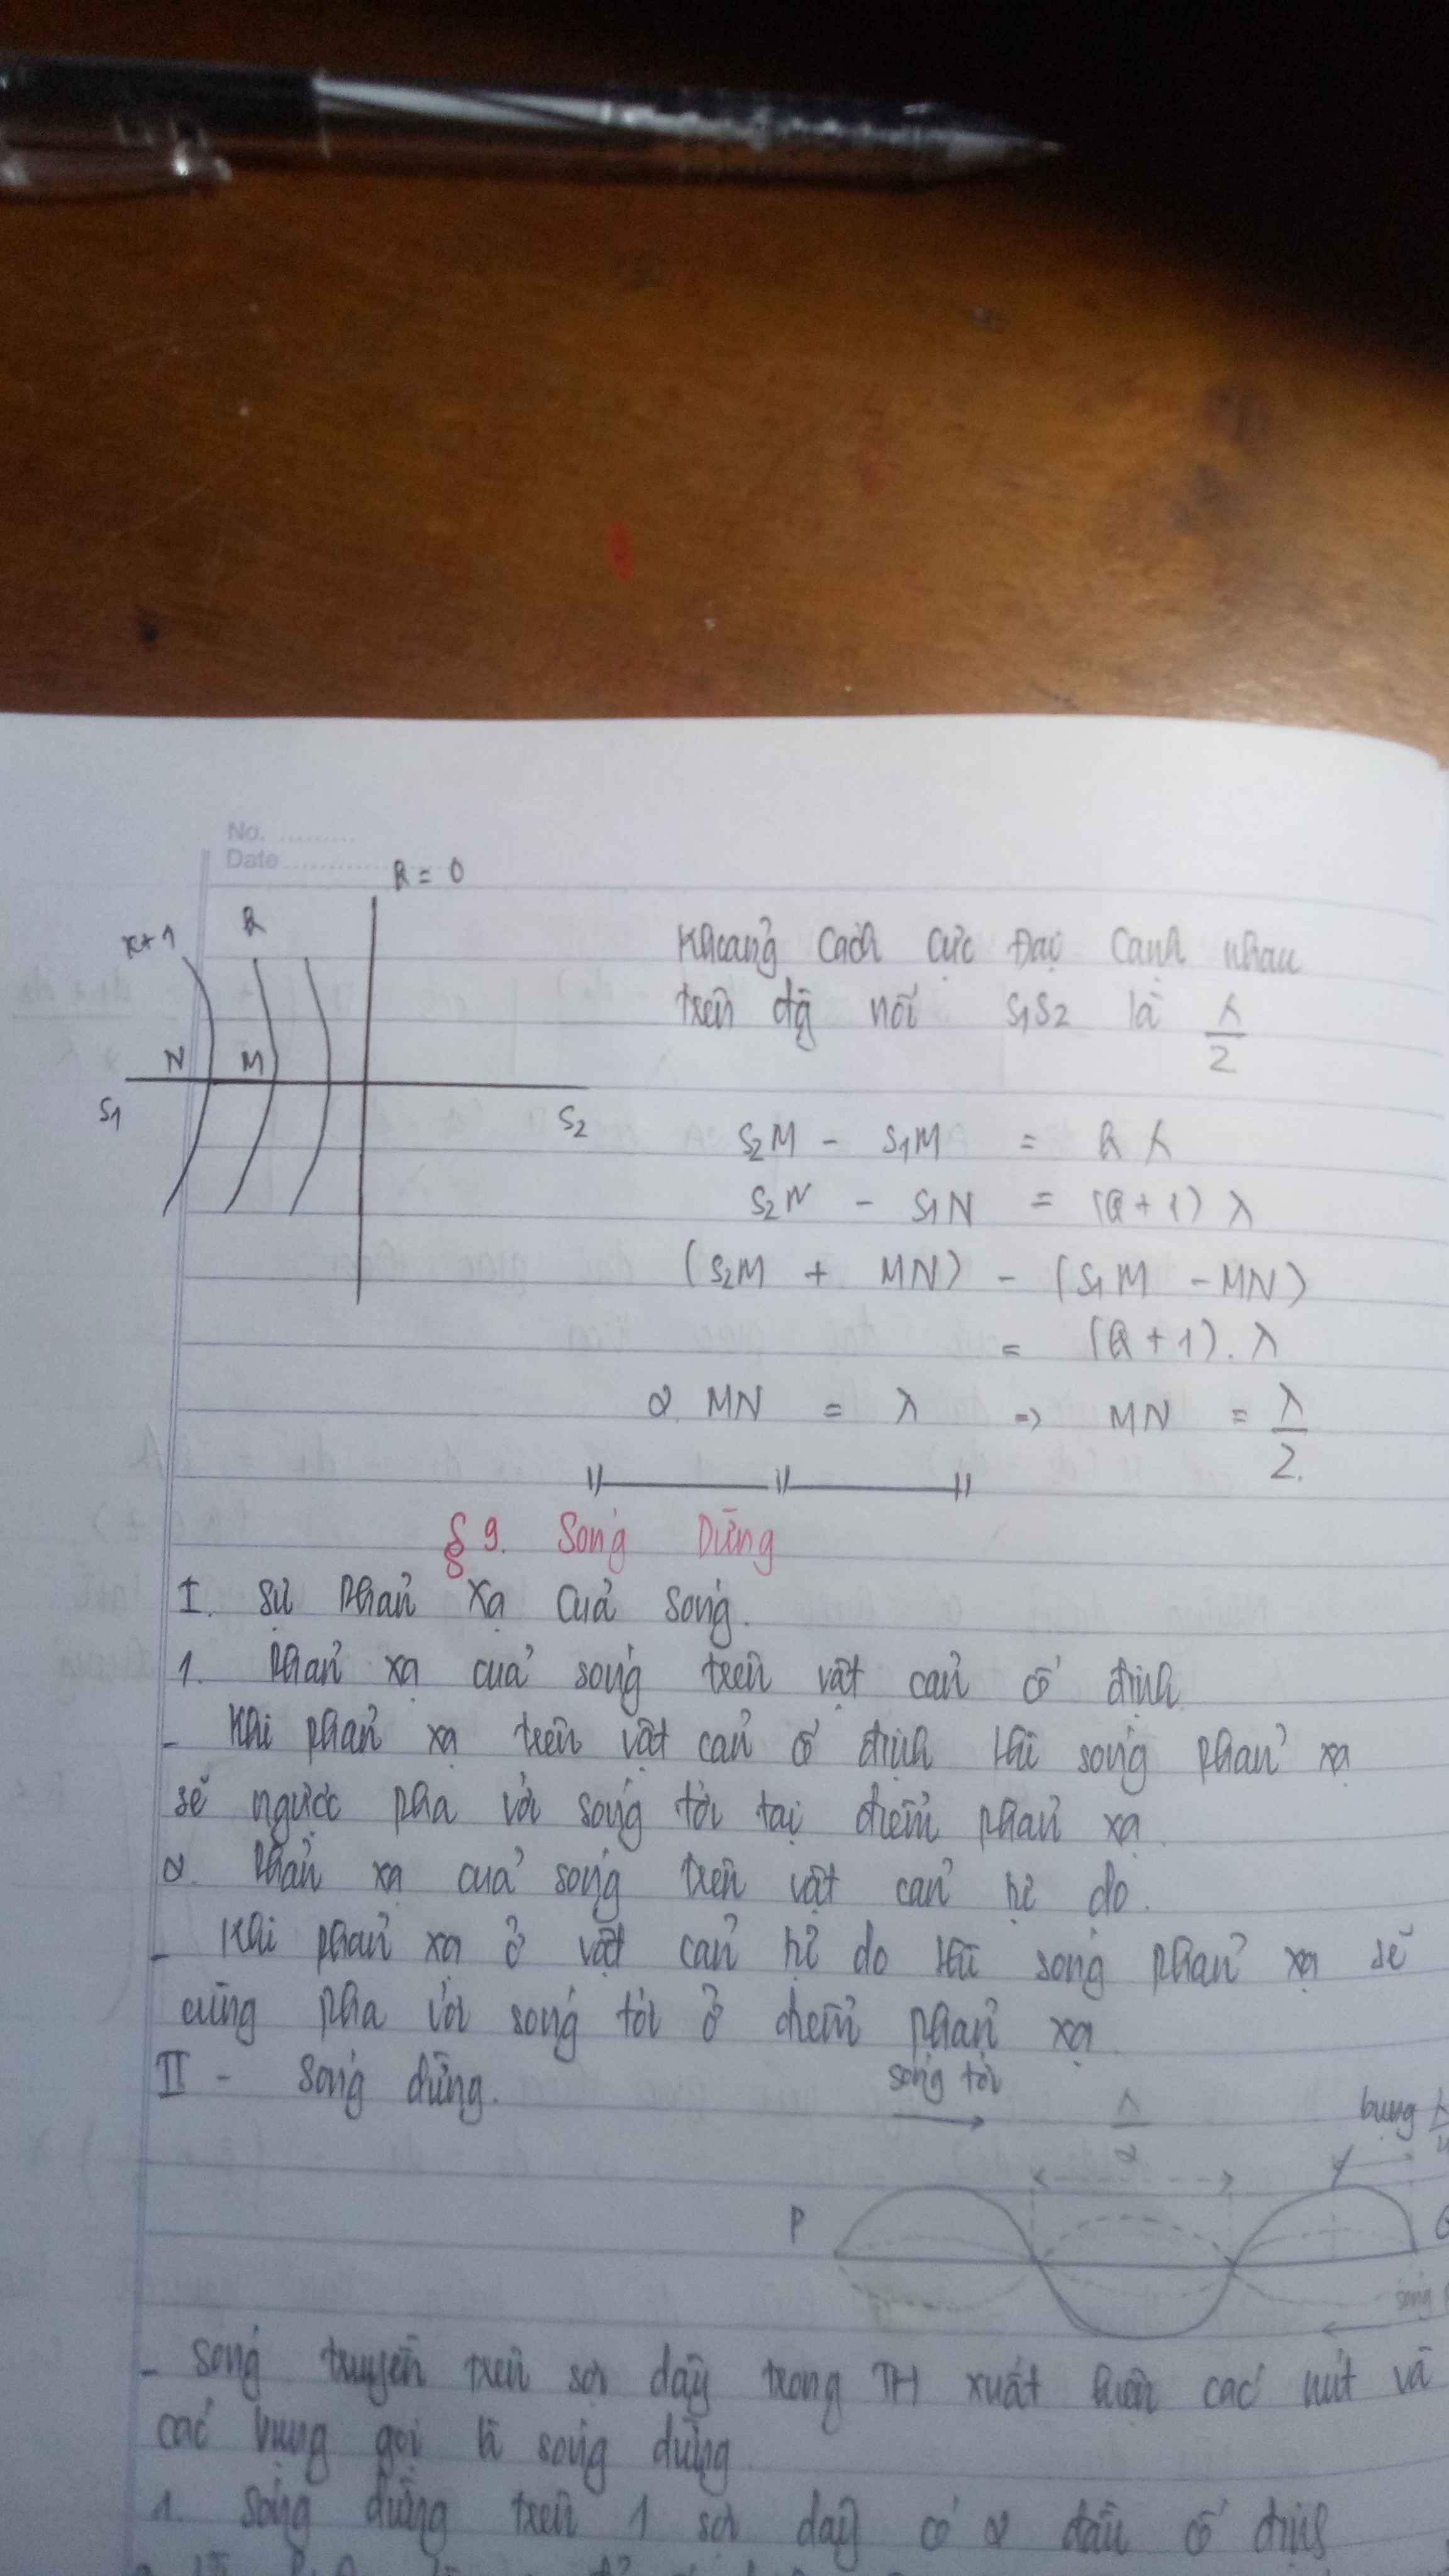 No. ............
Date ............
k = 0
k+1
k
N
M
S1
S2
Khoảng cách cực Đại cạnh nhau
trên đg nối S1S2 là λ/2
S2M - S1M = k λ
S2N - S1N = (k+1) λ
(S2M + MN) - (S1M - MN)
= (k+1).λ
2. MN = λ => MN = λ/2.
§9. Sóng Dừng
I. Sự Phản xạ của sóng.
1. Phản xạ của sóng trên vật cản cố định
- Khi phản xạ trên vật cản cố định thì sóng phản xạ
sẽ ngược pha với sóng tới tại điểm phản xạ.
2. Phản xạ của sóng trên vật cản tự do.
- Khi phản xạ ở vật cản tự do thì sóng phản xạ sẽ
cùng pha với sóng tới ở điểm phản xạ.
II - Sóng dừng.
sóng tới
λ/2
bụng
P
sóng
- Sóng truyền trên sợi dây trong TH xuất hiện các nút và
các bụng gọi là sóng dừng
1. Sóng dừng trên 1 sợi dây có 2 đầu cố định